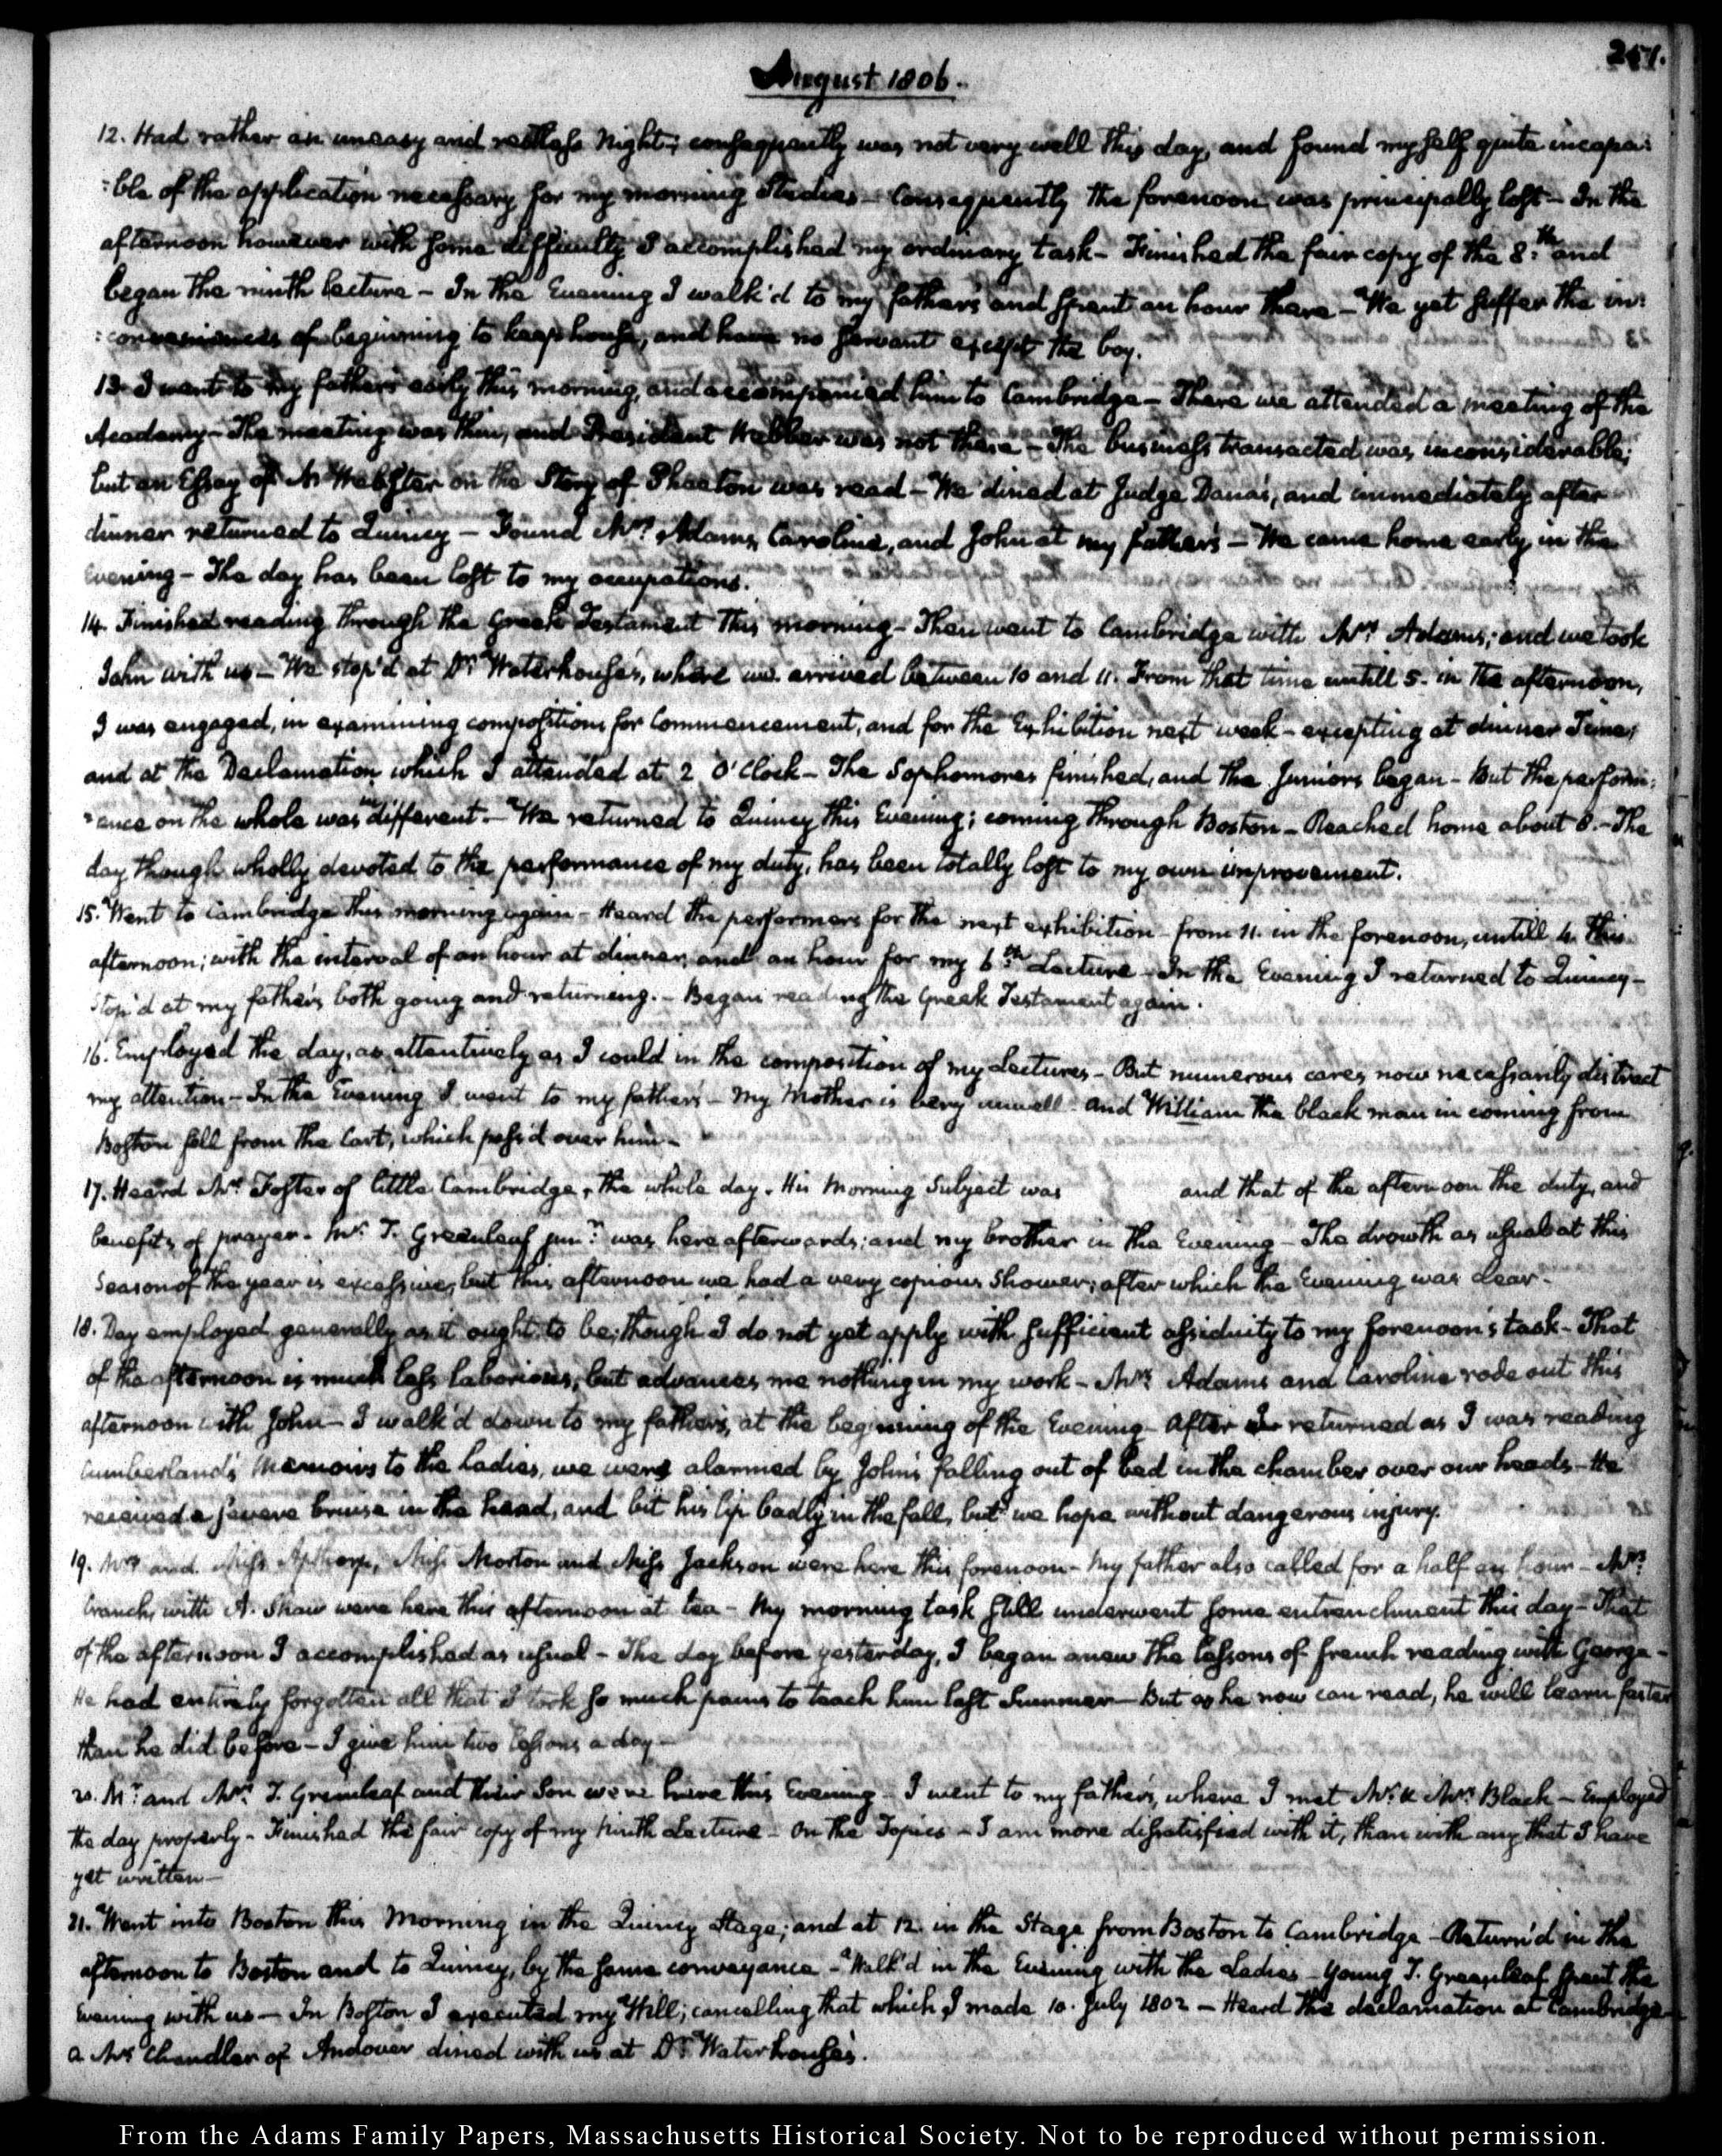 August 1806.
251.
12. Had rather an uneasy and restless Night; consequently was not very well this day, and found myself quite incapa:
:ble of the application necessary for my morning Studies — Consequently the forenoon was principally lost — In the
afternoon however with some difficulty I accomplished my ordinary task — Finished the fair copy of the 8th. and
began the ninth lecture — In the Evening I walk'd to my father's and spent an hour there — We yet suffer the in:
:conveniences of beginning to keep house, and have no servant except the boy.
13. I went to my father's early this morning, and accompanied him to Cambridge — There we attended a meeting of the
Academy — The meeting was thin, and President Webber was not there — The business transacted was inconsiderable;
but an Essay of Mr Webster on the Story of Phaeton was read — We dined at Judge Dana's, and immediately after
dinner returned to Quincy — Found Mrs. Adams, Caroline, and John at my father's — We came home early in the
Evening — The day has been lost to my occupations.
14. Finished reading through the Greek Testament this morning — Then went to Cambridge with Mrs. Adams; and we took
John with us — We stop'd at Dr. Waterhouse's, where we arrived between 10 and 11. From that time untill 5. in the afternoon,
I was engaged, in examining compositions for Commencement, and for the Exhibition next week — excepting at dinner Time;
and at the Declamation which I attended at 2 O'Clock — The Sophomores finished, and the Juniors began — But the perform:
:ance on the whole was indifferent. — We returned to Quincy this Evening; coming through Boston — Reached home about 8. — The
day though wholly devoted to the performance of my duty, has been totally lost to my own improvement.
15. Went to Cambridge this morning again — Heard the performers for the next exhibition — from 11. in the forenoon, untill 4. this
afternoon; with the interval of an hour at dinner, and an hour for my 6th. Lecture — In the Evening I returned to Quincy —
Stop'd at my father's both going and returning. — Began reading the Greek Testament again.
16. Employed the day, as attentively as I could in the composition of my Lectures — But numerous cares now necessarily distract
my attention — In the Evening I went to my father's — My Mother is very unwell — and William the black man in coming from
Boston fell from the Cart, which pass'd over him —
17. Heard Mr. Foster of little Cambridge, the whole day. His Morning Subject was and that of the afternoon the duty, and
benefits of prayer. Mr. T. Greenleaf junr. was here afterwards; and my brother in the Evening — The drowth as usual at this
Season of the year is excessive, but this afternoon we had a very copious Shower; after which the Evening was clear —
18. Day employed generally as it ought to be; though I do not yet apply with sufficient assiduity to my forenoon's task — That
of the afternoon is much less laborious; but advances me nothing in my work — Mrs. Adams and Caroline rode out this
afternoon with John — I walk'd down to my father's, at the beginning of the Evening — After I returned as I was reading
Cumberland's Memoirs to the Ladies, we were alarmed by John's falling out of bed in the chamber over our heads — He
received a severe bruise in the head, and bit his lip badly in the fall, but we hope without dangerous injury.
19. Mrs and Miss Apthorp, Miss Morton and Miss Jackson were here this forenoon — My father also called for a half an hour — Mrs.
Cranch, with A. Shaw were here this afternoon at tea — My morning task still underwent some entrenchment this day — That
of the afternoon I accomplished as usual — The day before yesterday, I began anew the lessons of french reading with George —
He had entirely forgotten all that I took so much pains to teach him last Summer — But as he now can read, he will learn faster
than he did before — I give him two lessons a day —
20. Mr. and Mrs. T. Greenleaf and their Son were here this Evening — I went to my father's, where I met Mr. & Mrs. Black — Employed
the day properly — Finished the fair copy of my ninth Lecture — On the Topics — I am more dissatisfied with it, than with any that I have
yet written —
21. Went into Boston this Morning in the Quincy Stage; and at 12. in the Stage from Boston to Cambridge — Return'd in the
afternoon to Boston and to Quincy, by the same conveyance — Walk'd in the Evening with the Ladies — Young T. Greenleaf spent the
Evening with us — In Boston I executed my Will; cancelling that which I made 10. July 1802 — Heard the declamation at Cambridge —
a Mr Chandler of Andover dined with us at Dr. Waterhouse's.
From the Adams Family Papers, Massachusetts Historical Society. Not to be reproduced without permission.